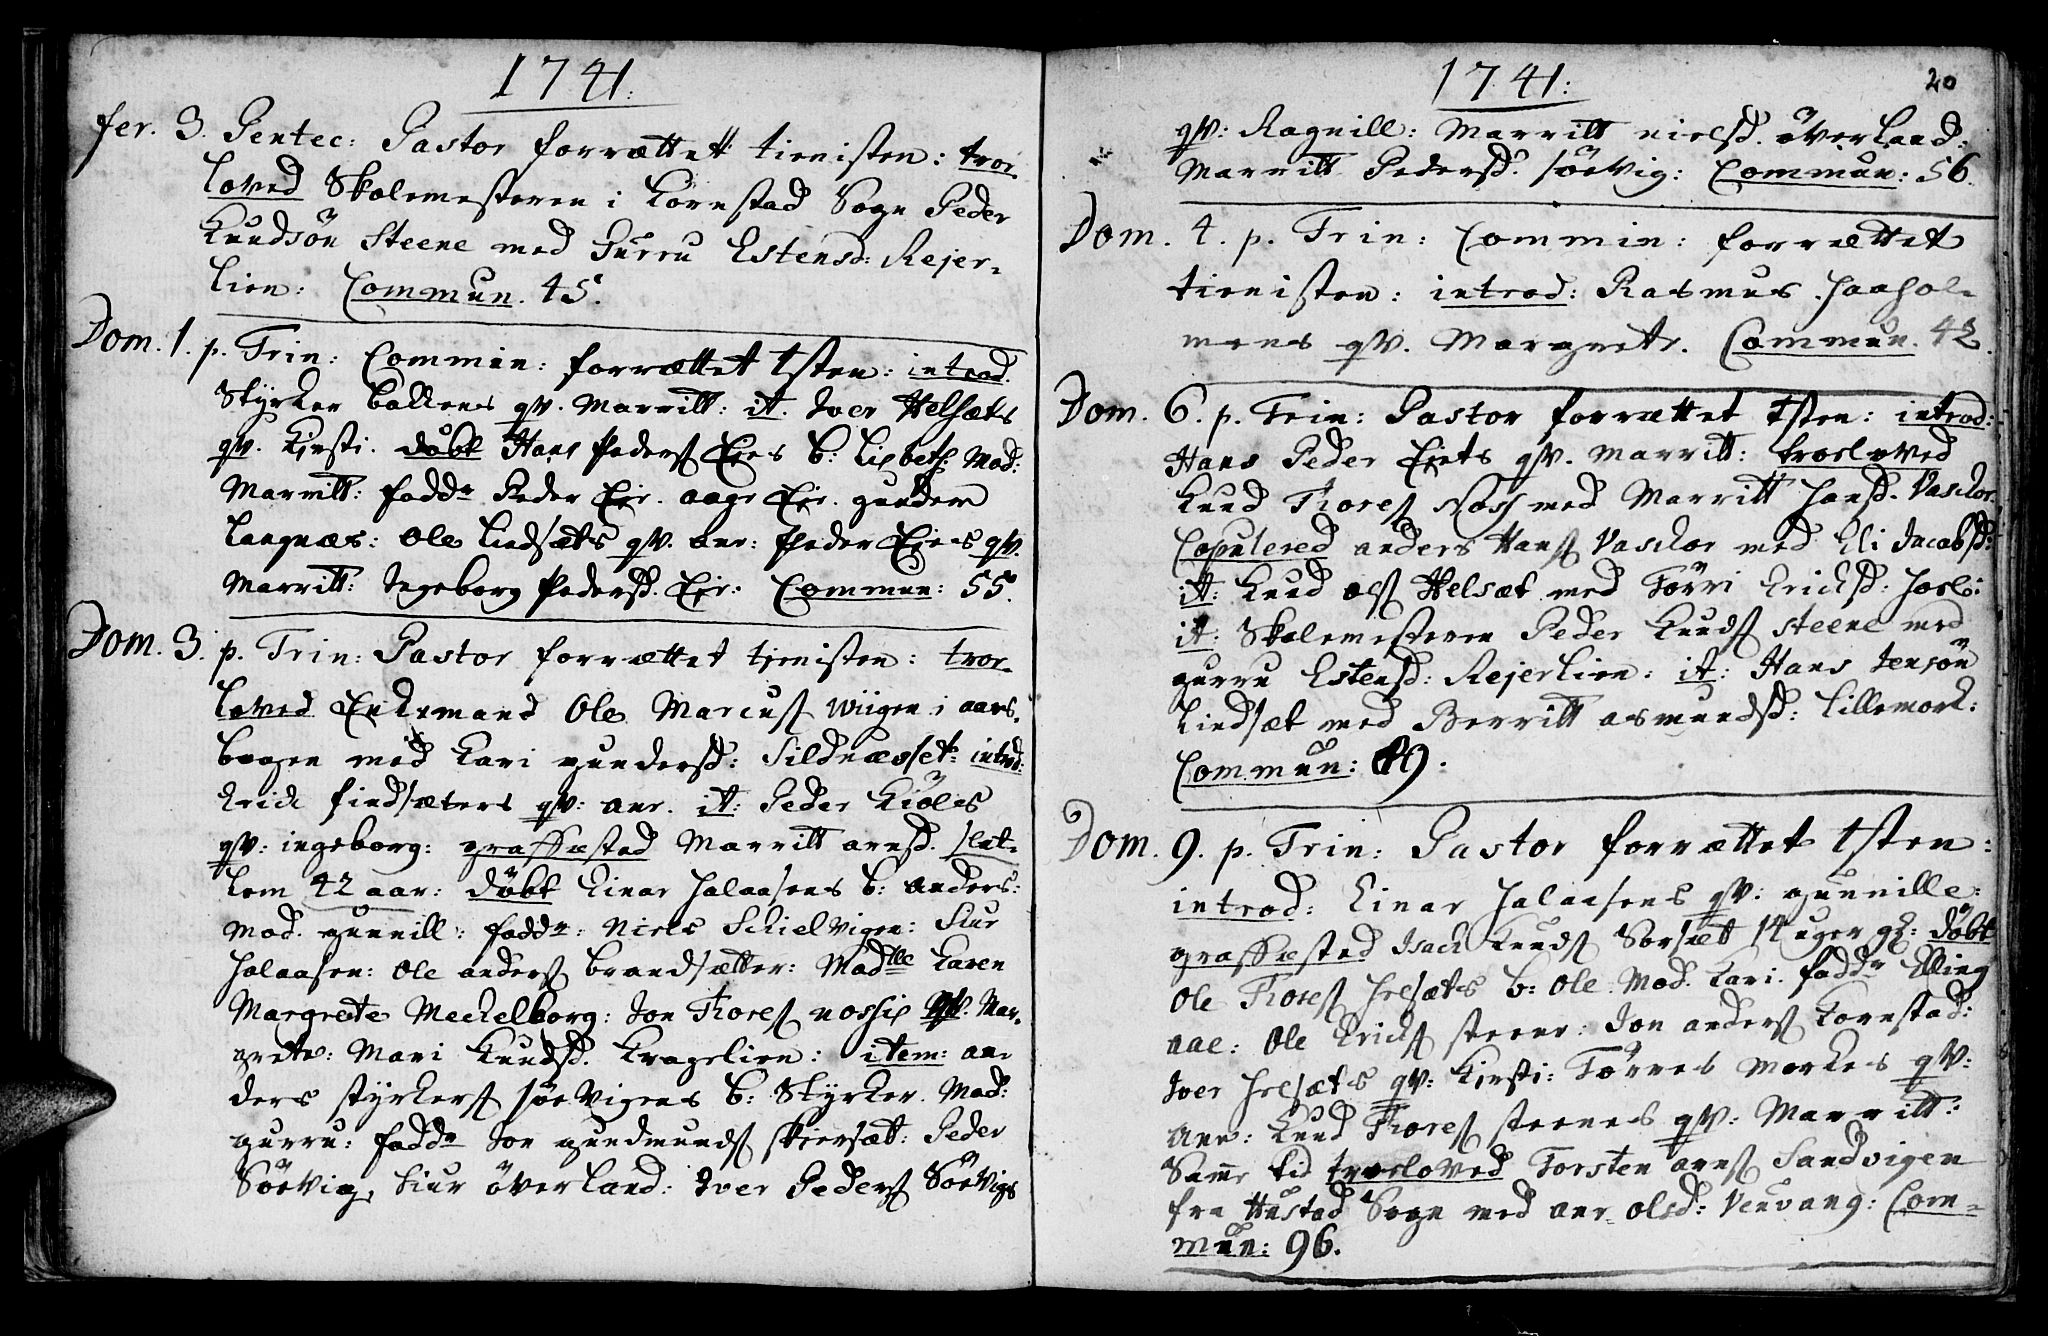 1741.
fer. 3. Pentec: Pastor forrættet tienisten: tror-
loved Skolemesteren i Kornstad Sogn Peder
Knudsön Steene med Gurru Estensd: Rejer-
lien: Commun. 45.
Dom. 1. p. Trin: Commin: forrættet tsten: introd.
Styrker bakkens qv. Marritt: it. Iver Helsæts
qv. Kirsti. döbt Hans Peders Eies b: Lisbeth: Mod:
Marritt: fadd. Peder Eie. aage Eie. gunder
Langnæs: Ole Lindsæts qv. ane: Peder Eies qv.
Marritt: Ingeborg Pedersd. Eie: Commun: 55.
Dom. 3. p. Trin: Pastor forrættet tienisten: tror-
loved Enkemand Ole Marcus Wiigen i aars-
bogen med Kari gundersd: Sildnæsset: introd:
Erich findsæters qv: ane. it: Peder Kiöls
qv: ingeborg: graffæsted Marritt arnsd. slet-
kem 42 aar: döbt Einar Halaasens b: anders:
Mod. gunnill: fadd: Niels Schielvigen: Siur
Halaasen: Ole anders brandsætter: Madlle Karen
Margrete Meckelborg: Jon Thores nossis qv. Mar-
grete: Mari Knudsd. Kragelien: item: an-
ders styrkers söevigens b: Styrker. Mod:
gurru: fadd Jon gundmunds skiersæt: Peder
Söevig, Siur överland: Iver Peders Söevigs
1741: 20
qv: Ragnill: Marritt nielsd. överland:
Marritt Pedersd. söevig: Commun: 56.
Dom. 4. p. Trin: Commin: forrættet
tienisten: introd: Rasmus Haahol-
mens qv. Margrete. Commun. 42.
Dom. 6. p. Trin: Pastor forrættet tsten: introd:
Hans Peder Eiets qv. Marritt: troeloved
Knud Thores Ross med Marritt Hansd. Vaschor.
Copulered anders Hans Vaschor med Eli Jacobsd:
it: Knud ols Helsæt med Törri Erichsd: Hosle:
it: Skolemesteren Peder Knuds steene med
gurru Estensd: Rejerlien: it: Hans Jensön
Lindsæt med Berritt asmundsd: Lillemork:
Commun: 89.
Dom. 9. p. Trin: Pastor forrættet tsten:
introd: Einar Halaasens qv: gunnille:
graffæsted Isach Knuds Sorsæt 14 uger gl: döbt
Ole Thores Helsæts b: Ole Mod. Kari. fadd Elling
aae: Ole Erichs steene: Jon anders Kornstad:
Iver Helsæts qv: Kirsti: Törres Morkes qv:
Ane: Knud Thores steenes qv: Marritt:
Same tid troeloved Torsten arns Sandvigen
fra Hustad Sogn med ane olsd: Venvang: Com-
mun: 96.